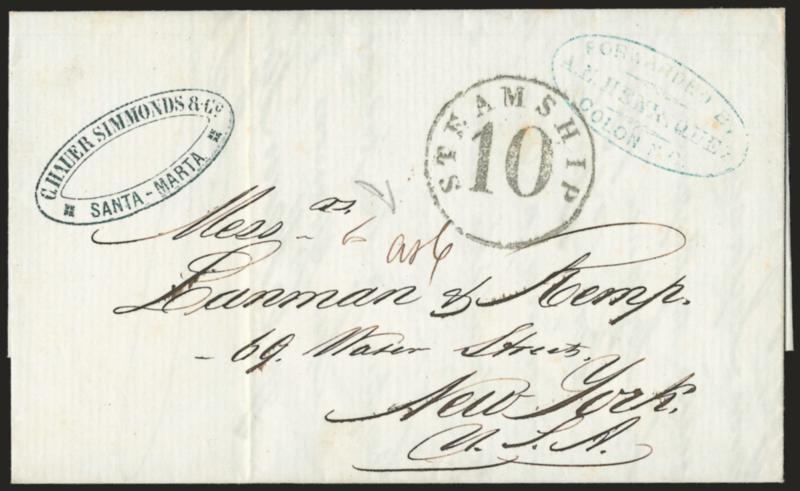 C. HAUER SIMMONDS & Co
SANTA-MARTA
STEAMSHIP
10
FORWARDED BY
A. E. HENRIQUEZ
COLON N.G.
Messrs.
Lanman & Kemp.
69. Water Street.
New York.
U.S.A.